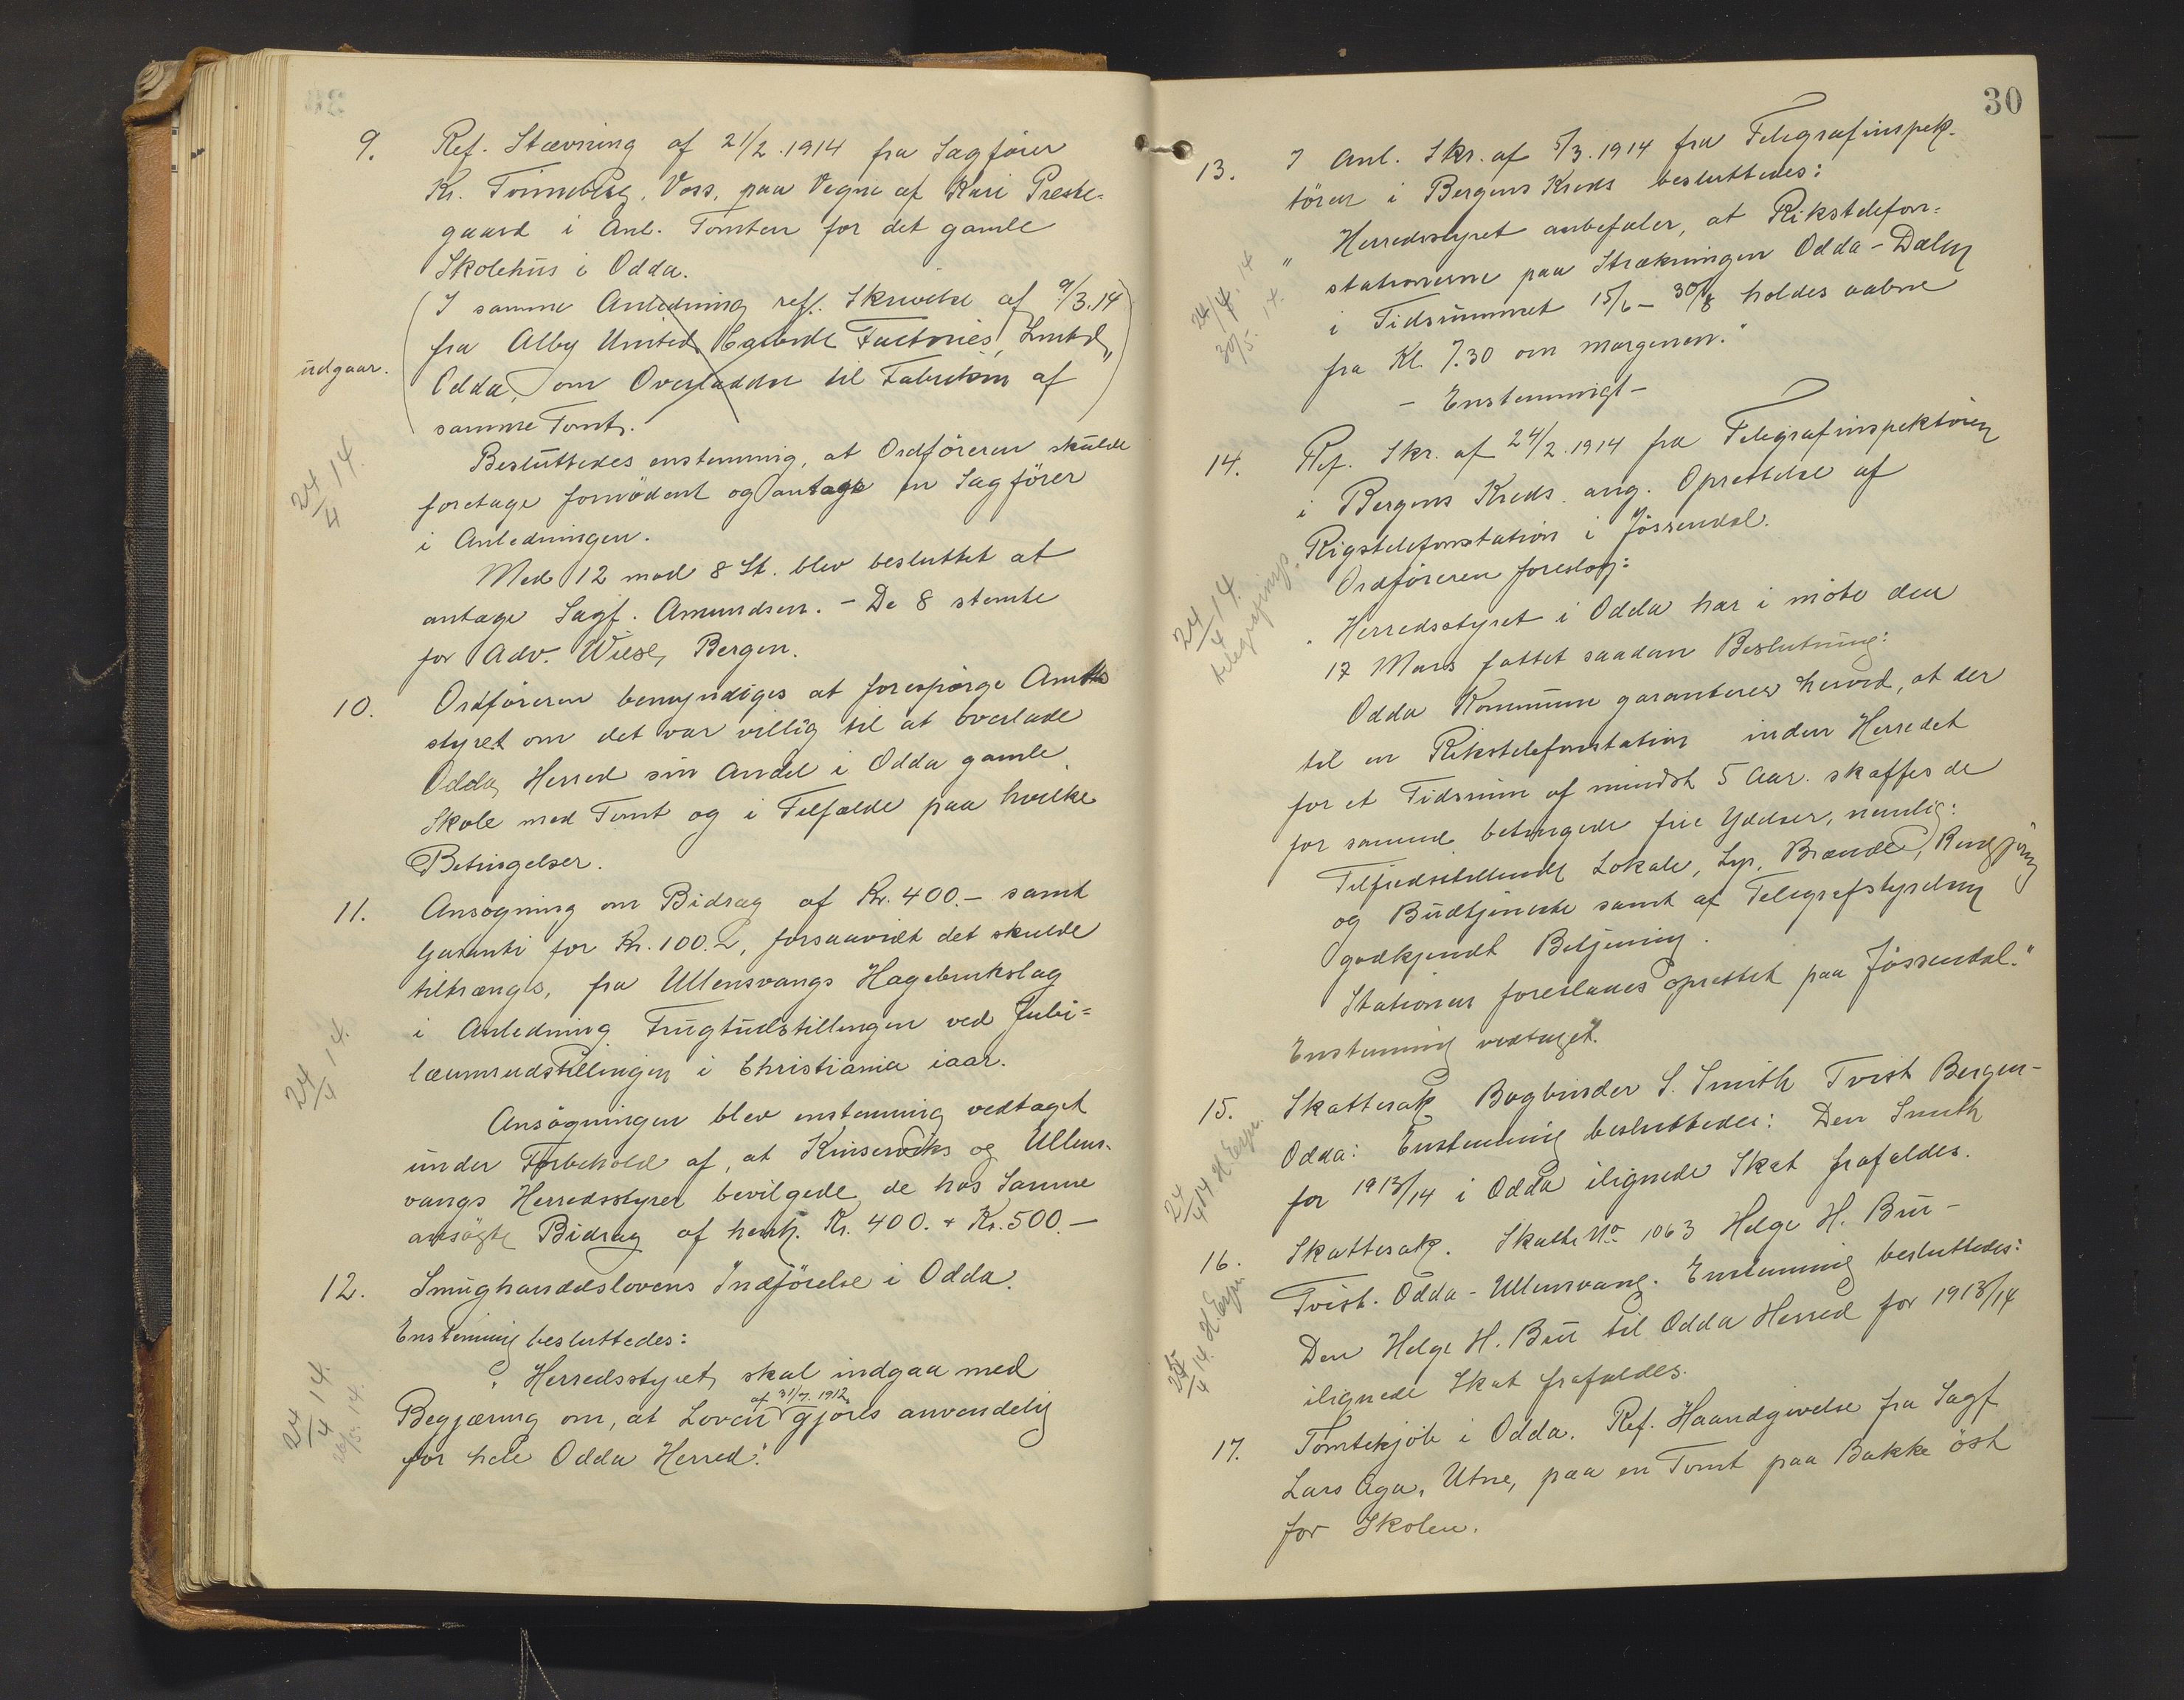 9. Ref. Stævning af 21/2.1914 fra Sagfører
Kr. Tønneberg, Voss, paa Vegne af Kari Preste-
gaard i Anl. Tomten for det gamle
Skolehus i Odda.
(I samme Anledning ref. Skrivelse af 9/3.14
fra Alby United Carbide Factories, Limtd,
udgaar.
Odda, om Overladelse til Fabriken af
samme Tomt.)
24/4 14.
Besluttedes enstemmig, at Ordføreren skulde
foretage fornødent og antage en Sagfører
i Anledningen.
Med 12 mod 8 St. blev besluttet at
antage Sagf. Amundsen. - De 8 stemte
for Adv. Wiese, Bergen.
10. Ordføreren bemyndiges at forespørge Amts
styret om det var villig til at overlade
Odda Herred sin Andel i Odda gamle
Skole med Tomt og i Tilfælde paa hvilke
Betingelser.
11. Ansøgning om Bidrag af Kr. 400.- samt
Garanti for Kr. 100.-, forsaavidt det skulde
tiltrænges, fra Ullensvangs Hagebrukslag
i Anledning Frugtudstillingen ved Jubi=
læumsudstillingen i Christiania iaar.
24/4 14.
Ansøgningen blev enstemmig vedtaget
under Forbehold af, at Kinserviks og Ullens-
vangs Herredsstyrer bevilgede de hos Samme
ansøgte Bidrag af henh. Kr. 400. + Kr. 500.-
12. Smughandelslovens Indførelse i Odda.
Enstemmig besluttedes:
24/4 14.
"Herredsstyret skal indgaa med
af 31/7. 1912
Begjæring om, at Loven gjøres anvendelig
for hele Odda Herred."
30
13. I Anl. Skr. af 5/3.1914 fra Telegrafinspek-
tøren i Bergens Kreds besluttedes:
"Herredsstyret anbefaler, at Rikstelefon=
stationerne paa Strækningen Odda-Dalen
24/4. 14
30/5. 14.
i Tidsrummet 15/6 - 30/8 holdes aabne
fra Kl. 7.30 om morgenen."
- Enstemmigt -
14. Ref. Skr. af 24/2.1914 fra Telegrafinspektøren
i Bergens Kreds ang. Oprettelse af
Rigstelefonstation i Jøssendal.
24/4 14.
telegrafinsp.
Ordføreren foreslog:
"Herredsstyret i Odda har i møte den
17 Mars fattet saadan Beslutning:
Odda Kommune garanterer herved, at der
til en Rikstelefonstation inden Herredet
for et Tidsrum af mindst 5 Aar skaffes de
for samme betingede frie Ydelser, nemlig:
Tilfredsstillende Lokale, Lys, Brænde, Rengjøring
og Budtjeneste samt af Telegrafstyrelsen
godkjendt Betjening.
Stationen foreslaaes oprettet paa Jøssendal."
Enstemmig vedtaget.
15. Skattesak Bogbinder S. Smith Tvist Bergen-
Odda: Enstemmig besluttedes: Den Smith
for 1913/14 i Odda ilignede Skat frafaldes.
24/4 14
16. Skattesak. Skatte No 1063 Helge H. Bu -
Tvist. Odda - Ullensvang. Enstemmig besluttedes:
Den Helge H. Bu til Odda Herred for 1913/14
ilignede Skat frafaldes.
17. Tomtekjøb i Odda. Ref. Haandgivelse fra Sagf
Lars Aga, Utne, paa en Tomt paa Bakke øst
for Skolen.